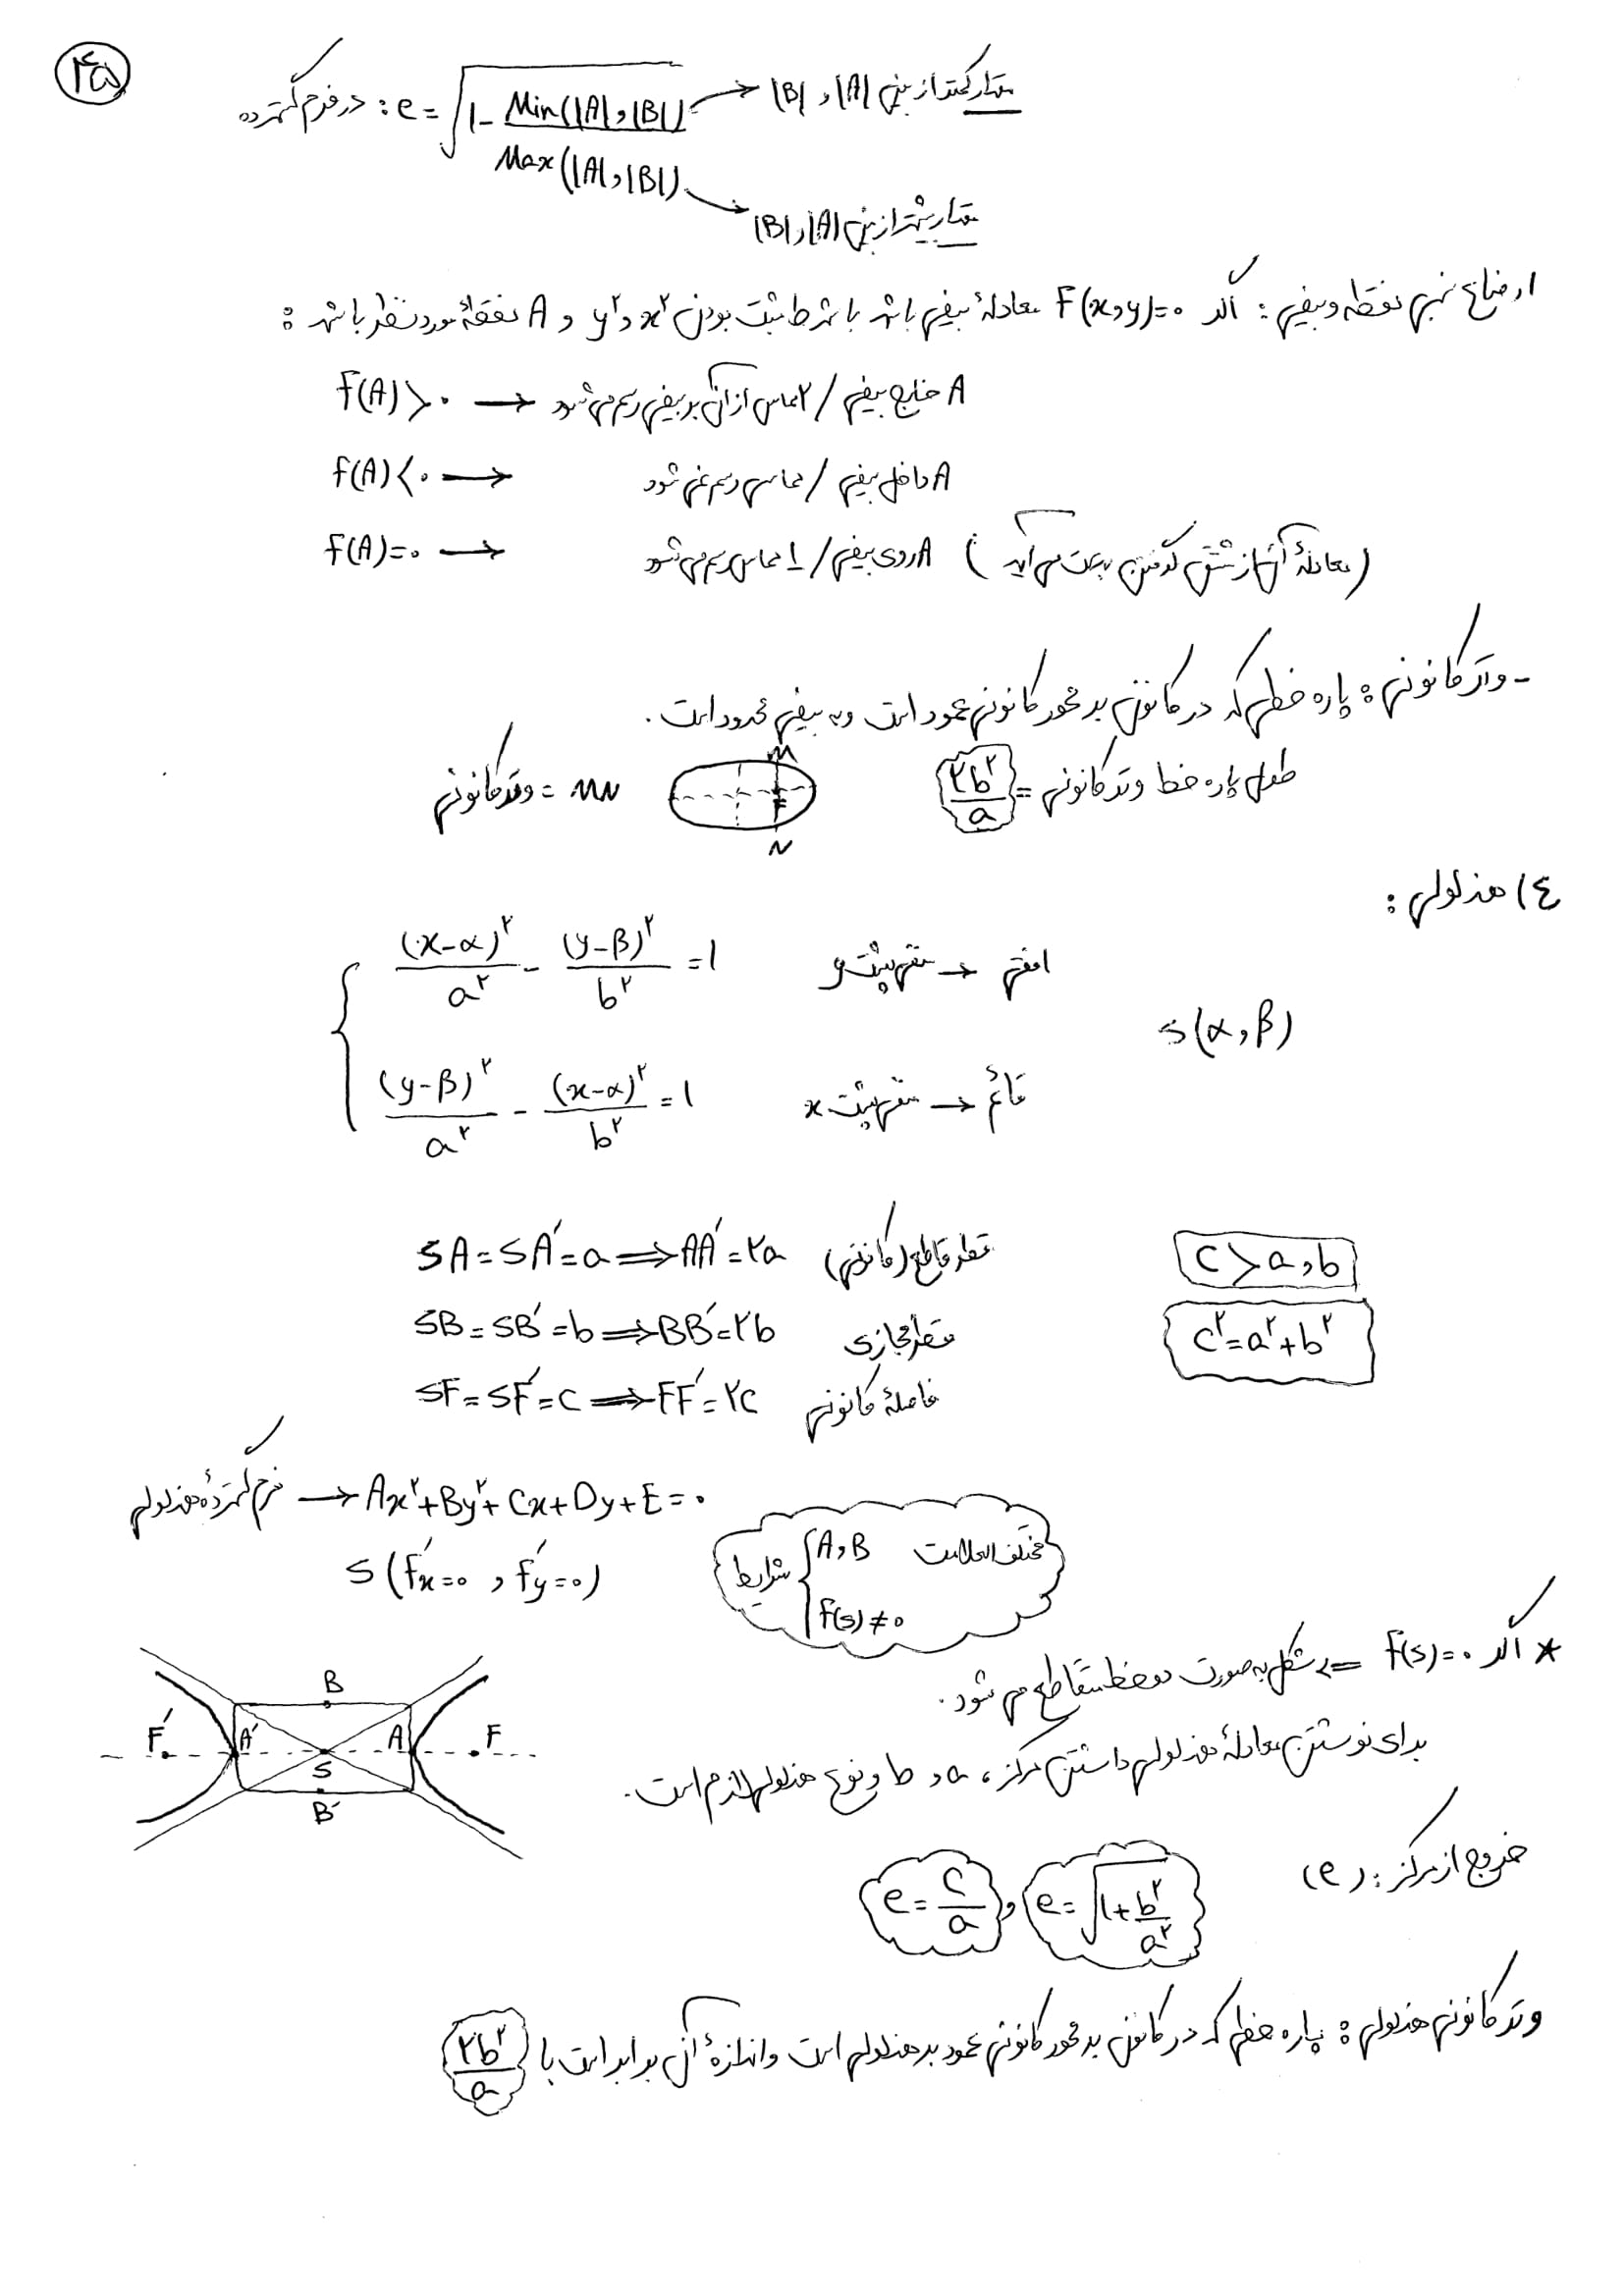 ۴۵
در فرم گسترده : e = √(1 - Min(|A| , |B|) / Max(|A| , |B|))
مقدار کمتر از بین |A| و |B|
مقدار بیشتر از بین |A| و |B|
اوضاع نسبی نقطه و بیضی : اگر F(x,y)=۰ معادلهٔ بیضی باشد با شرط مثبت بودن x² و y² و A نقطهٔ مورد نظر باشد :
f(A) > ۰ → A خارج بیضی / ۲ مماس از آن بر بیضی رسم می شود
f(A) < ۰ → A داخل بیضی / مماس رسم نمی شود
f(A) = ۰ → A روی بیضی / ۱ مماس رسم می شود (معادلهٔ آن از مشتق گرفتن بدست می آید)
- وتر کانونی : پاره خطی که در کانون بر محور کانونی عمود است و به بیضی محدود است .
طول پاره خط وتر کانونی = ۲b²/a
M
F
N
MN = وتر کانونی
۴) هذلولی :
(x-α)²/a² - (y-β)²/b² = 1 افقی → منفی پشت y
S(α , β)
(y-β)²/a² - (x-α)²/b² = 1 قائم → منفی پشت x
SA = SA' = a ⟹ AA' = ۲a قطر قاطع (کانونی)
C > a , b
SB = SB' = b ⟹ BB' = ۲b قطر مجازی
C² = a² + b²
SF = SF' = C ⟹ FF' = ۲C فاصلهٔ کانونی
فرم گستردهٔ هذلولی → Ax² + By² + Cx + Dy + E = ۰
S (f'x = ۰ , f'y = ۰)
شرایط { A , B مختلف العلامت
f(s) ≠ ۰
* اگر f(s) = ۰ ⇒ شکل به صورت دو خط متقاطع می شود .
B
F' A' S A F
B'
برای نوشتن معادلهٔ هذلولی داشتن مرکز ، a و b و نوع هذلولی لازم است .
خروج از مرکز : (e)
e = √(1 + b²/a²) و e = C/a
وتر کانونی هذلولی : پاره خطی که در کانون بر محور کانونی عمود بر هذلولی است و اندازهٔ آن برابر است با ۲b²/a